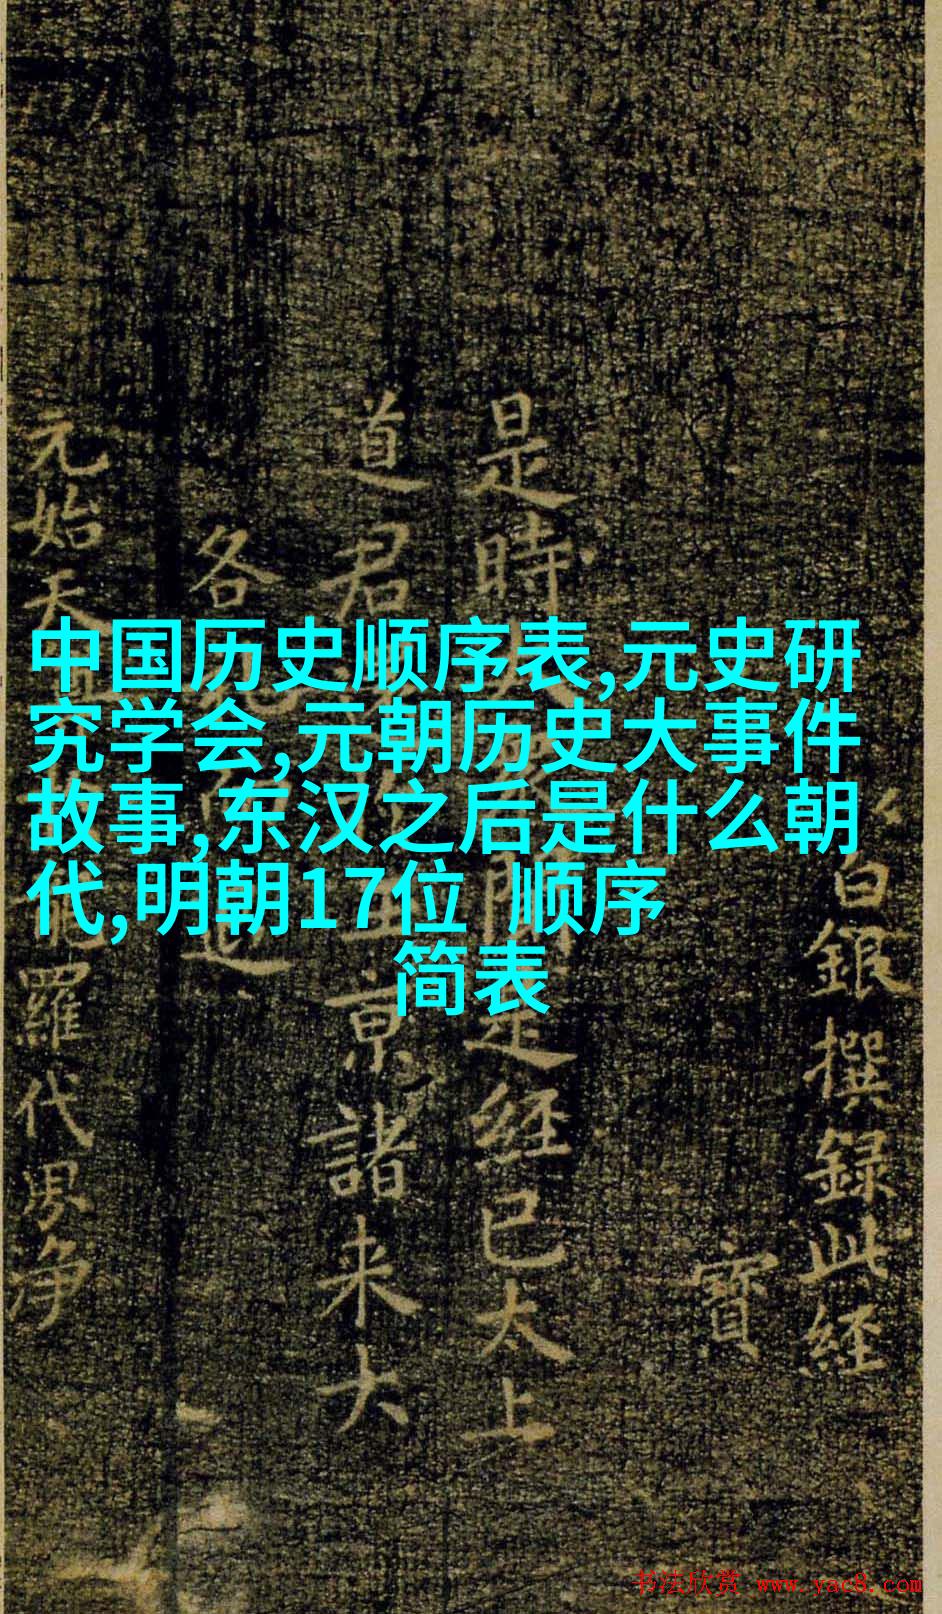 中国历史顺序表,元史研
究学会,元朝历史大事件
故事,东汉之后是什么朝
代,明朝17位 顺序
简表
白銀撰録此經
寶
是時
是經已太上
道君
京諸来大
各
元始天
羅代界净
书法欣赏 www.yac8.com